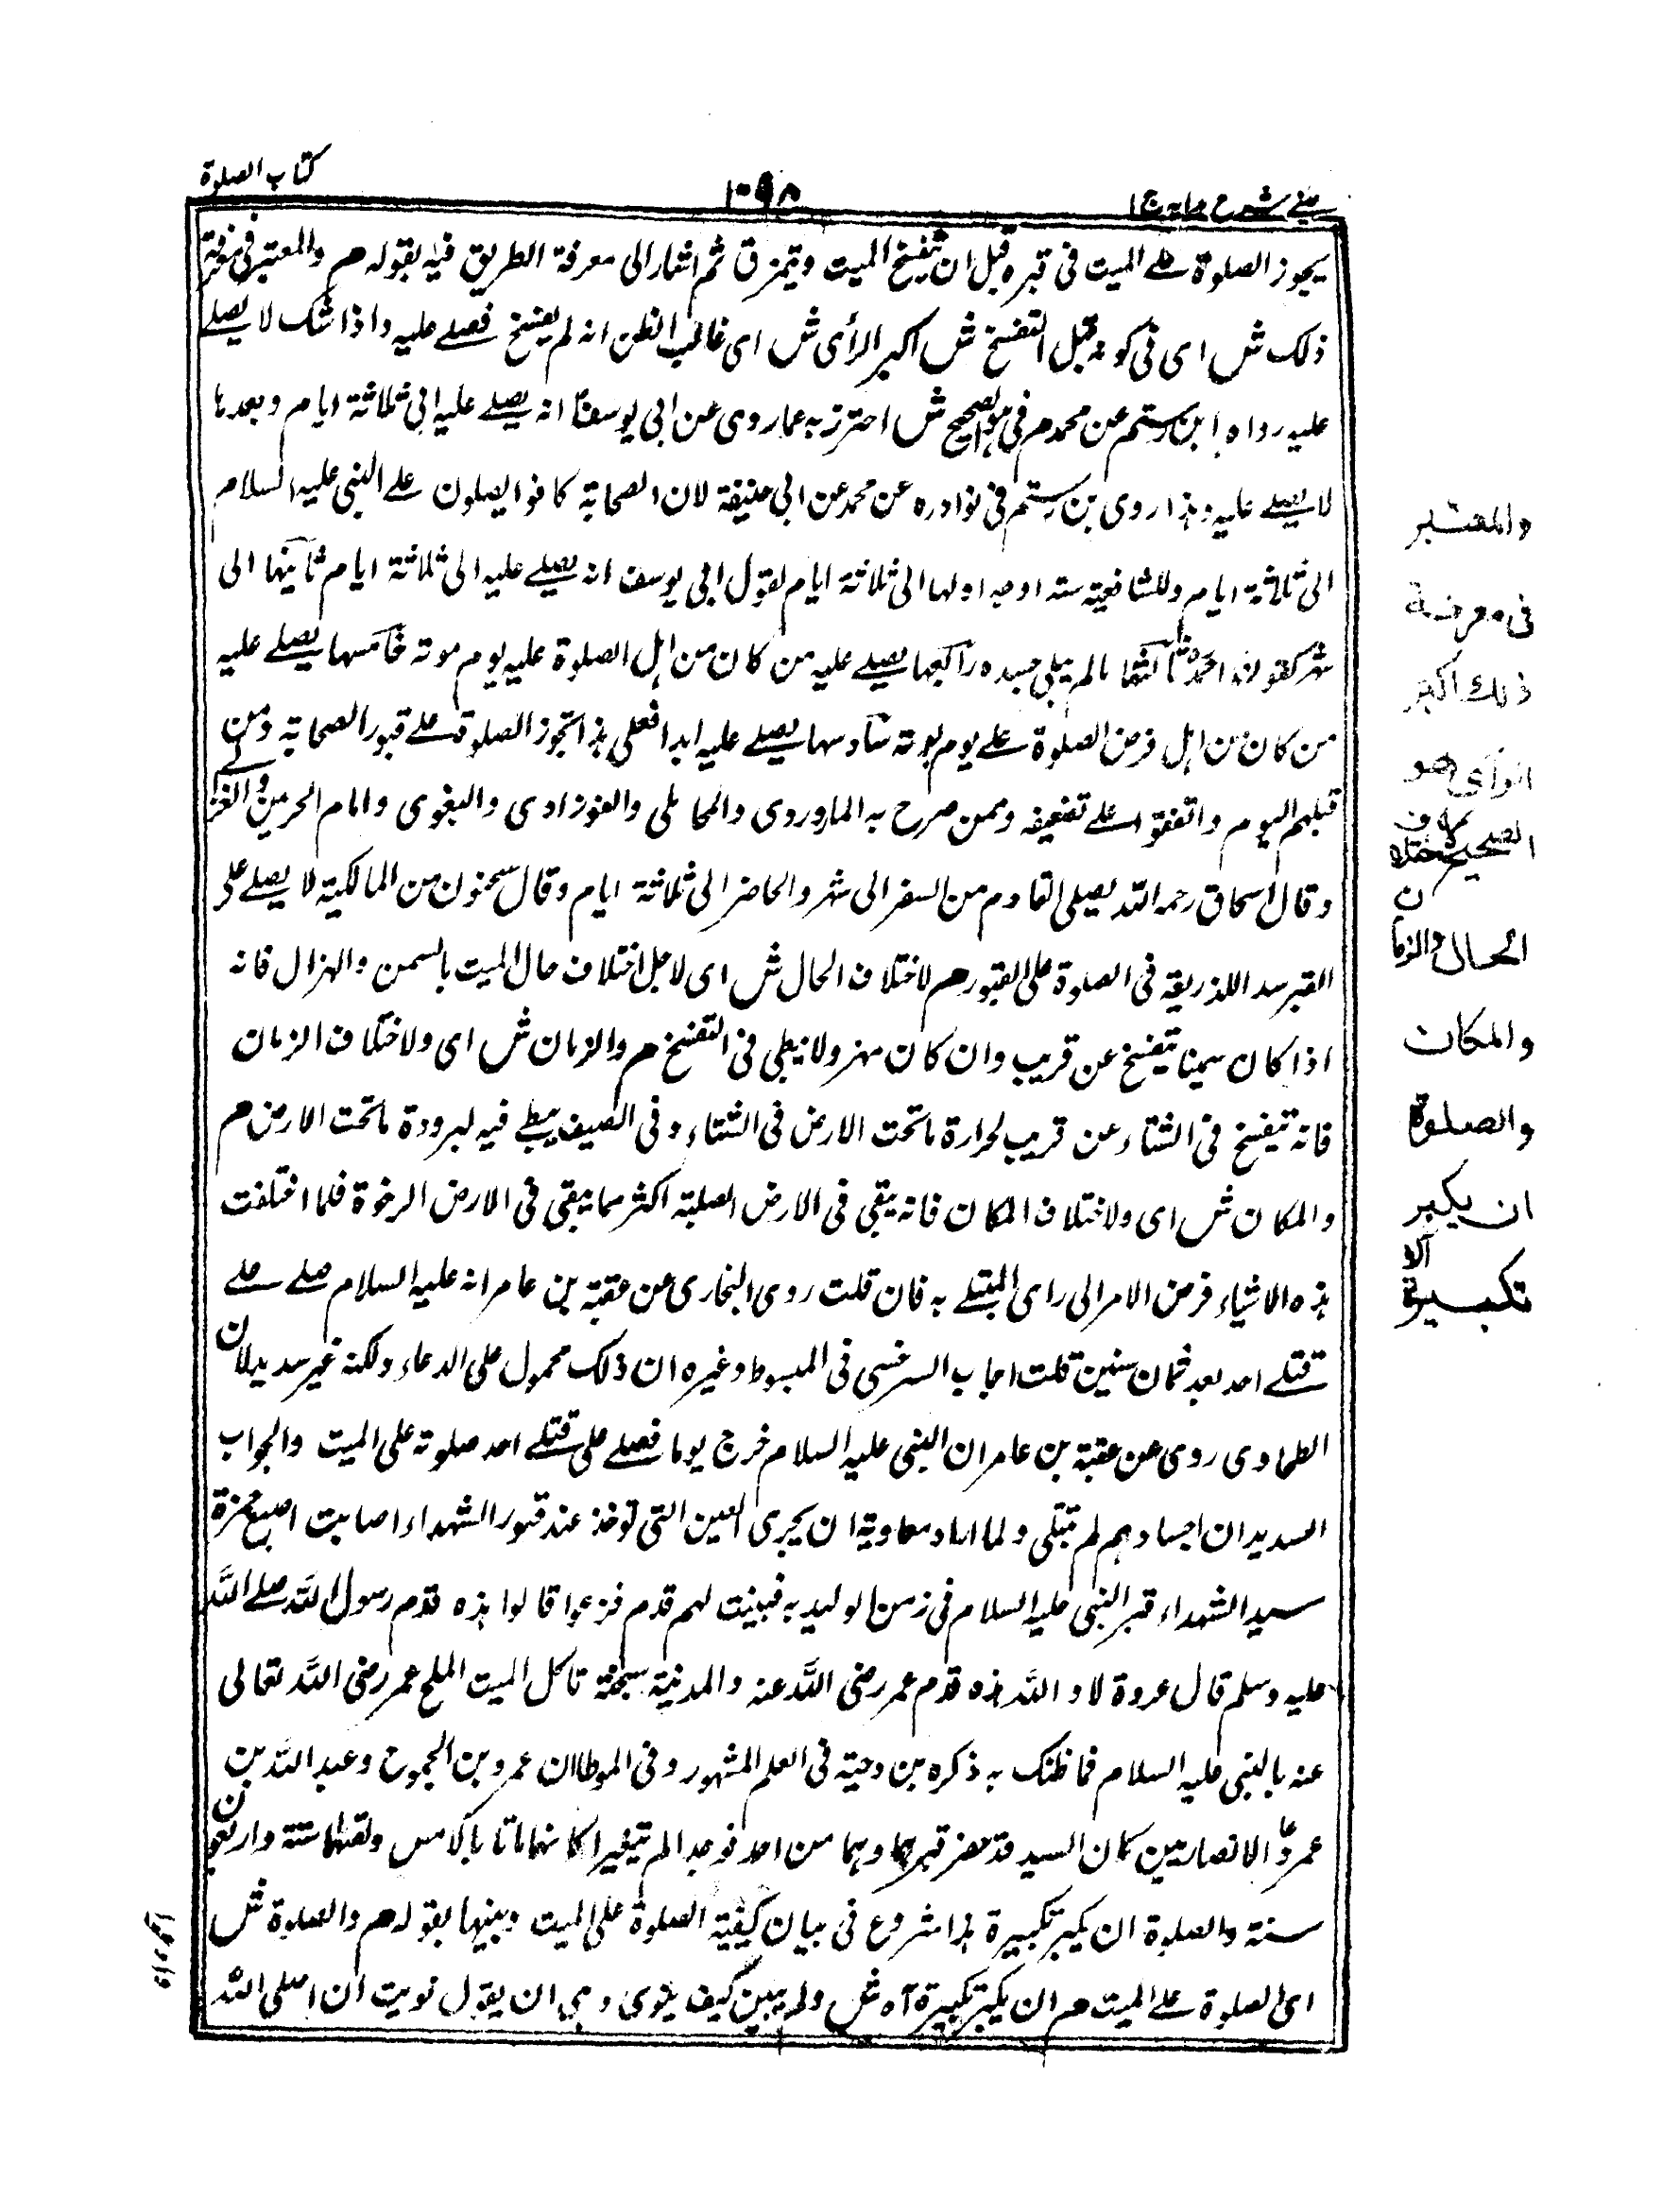 كتاب الصلوة
١٠٩٨
عيني شرح هدايه ج ١
يجوز الصلوة على الميت فى قبره قبل ان يتفسخ الميت ويتمزق ثم اشار الى معرفة الطريق فيه بقوله م والمعتبر فى معرفة
ذلك ش اى فى كونه قبل التفسخ ش اكبر الرأى ش اى غالب الظن انه لم يتفسخ فصلے عليه واذا شك لا يصلے
عليه رواه ابن رستم عن محمد م فى هو الصحيح ش احترز به عما روى عن ابى يوسف انه يصلے عليه الى ثلاثة ايام وبعدها
لا يصلے عليه وهذا روى بن رستم فى نوادره عن محمد عن ابى حنيفة لان الصحابة كانوا يصلون على النبى عليه السلام
الى ثلاثة ايام وللشافعية ستة اوجه اولها الى ثلاثة ايام لقول ابى يوسف انه يصلے عليه الى ثلاثة ايام ثانيها الى
شهر كقول احمد ثالثها مالم يبلى جسده رابعها يصلے عليه من كان من اهل الصلوة عليه يوم موته خامسها يصلے عليه
من كان من اهل فرض الصلوة علے يوم موته سادسها يصلے عليه ابدا فعلى هذا تجوز الصلوة علے قبور الصحابة ومن
قبلهم اليوم واتفقوا علے تضعيفه وممن صرح به الماوردى والمحاملى والفورادى والبغوى وامام الحرمين والغزالى
وقال اسحاق رحمه الله يصلى القادم من السفر الى شهر والحاضر الى ثلاثة ايام وقال سحنون من المالكية لا يصلے على
القبر سدا للذريعة فى الصلوة على القبور م لاختلاف الحال ش اى لاجل اختلاف حال الميت بالسمن والهزال فانه
اذا كان سمينا يتفسخ عن قريب وان كان مهزولا يبطى فى التفسخ م والزمان ش اى ولاختلاف الزمان
فانه يتفسخ فى الشتاء عن قريب لحرارة ماتحت الارض فى الشتاء وفى الصيف يبطے فيه لبرودة ماتحت الارض م
والمكان ش اى ولاختلاف المكان فانه يبقى فى الارض الصلبة اكثر مما يبقى فى الارض الرخوة فلما اختلفت
هذه الاشياء فرض الامر الى راى المبتلے به فان قلت روى البخارى عن عقبة بن عامر انه عليه السلام صلے علے
قتلے احد بعد ثمان سنين قلت اجاب السرخسى فى المبسوط وغيره ان ذلك محمول على الدعاء ولكنه غير سديد لان
الطحاوى روى عن عقبة بن عامر ان النبى عليه السلام خرج يوما فصلے على قتلے احد صلوته على الميت والجواب
السديد ان اجسادهم لم تبلى ولما اراد معاوية ان يجرى العين التى توخذ عند قبور الشهداء اصابت اصبع حمزة
سيد الشهداء قبر النبى عليه السلام فى زمن الوليد به فبينت لهم قدم فزعوا قالوا هذه قدم رسول الله صلے الله
عليه وسلم قال عروة لا والله هذه قدم عمر رضى الله عنه والمدينة سبخة تاكل الميت الملح عمر رضى الله تعالى
عنه بالنبى عليه السلام فما ظنك به ذكره بن دحية فى العلم المشهور وفى الموطا ان عمرو بن الجموح وعبد الله بن
عمرو الانصاريين كان السيد قد حفر قبرهما وهما من احد فوجدا لم يتغيرا كانهما ماتا بالامس وبينهما ستة واربعون
سنة والصلوة ان يكبر تكبيرة هذا شروع فى بيان كيفية الصلوة على الميت وبينها بقوله م والصلوة ش
اى الصلوة علے الميت م ان يكبر تكبيرة آه ش ولم يبين كيف ينوى وهى ان يقول نويت ان اصلى الله
والمعتبر
فى معرفة
ذلك اكبر
الرأى هو
الصحيح لاختلاف
الحال والزمان
والمكان
والصلوة
ان يكبر
تكبيرة آلا